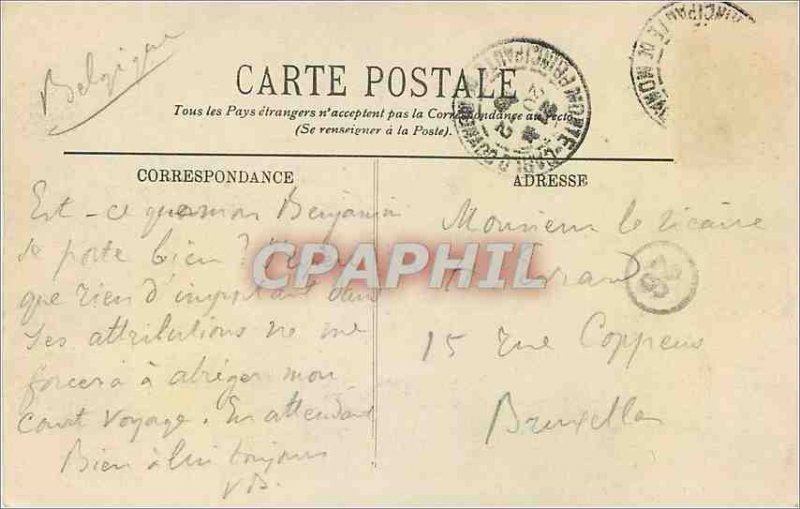 Belgique
CARTE POSTALE
Tous les Pays étrangers n'acceptent pas la Correspondance au recto
(Se renseigner à la Poste).
CORRESPONDANCE
Est-ce que mon Benjamin
se porte bien ?
que rien d'important dans
ses attributions ne me
forcera à abréger mon
court voyage. En attendant
Bien à lui toujours
VB.
ADRESSE
Monsieur le vicaire
15 rue Coppens
Bruxelles
MONTE-CARLO
PRINCIPAUTÉ DE MONACO
CPAPHIL